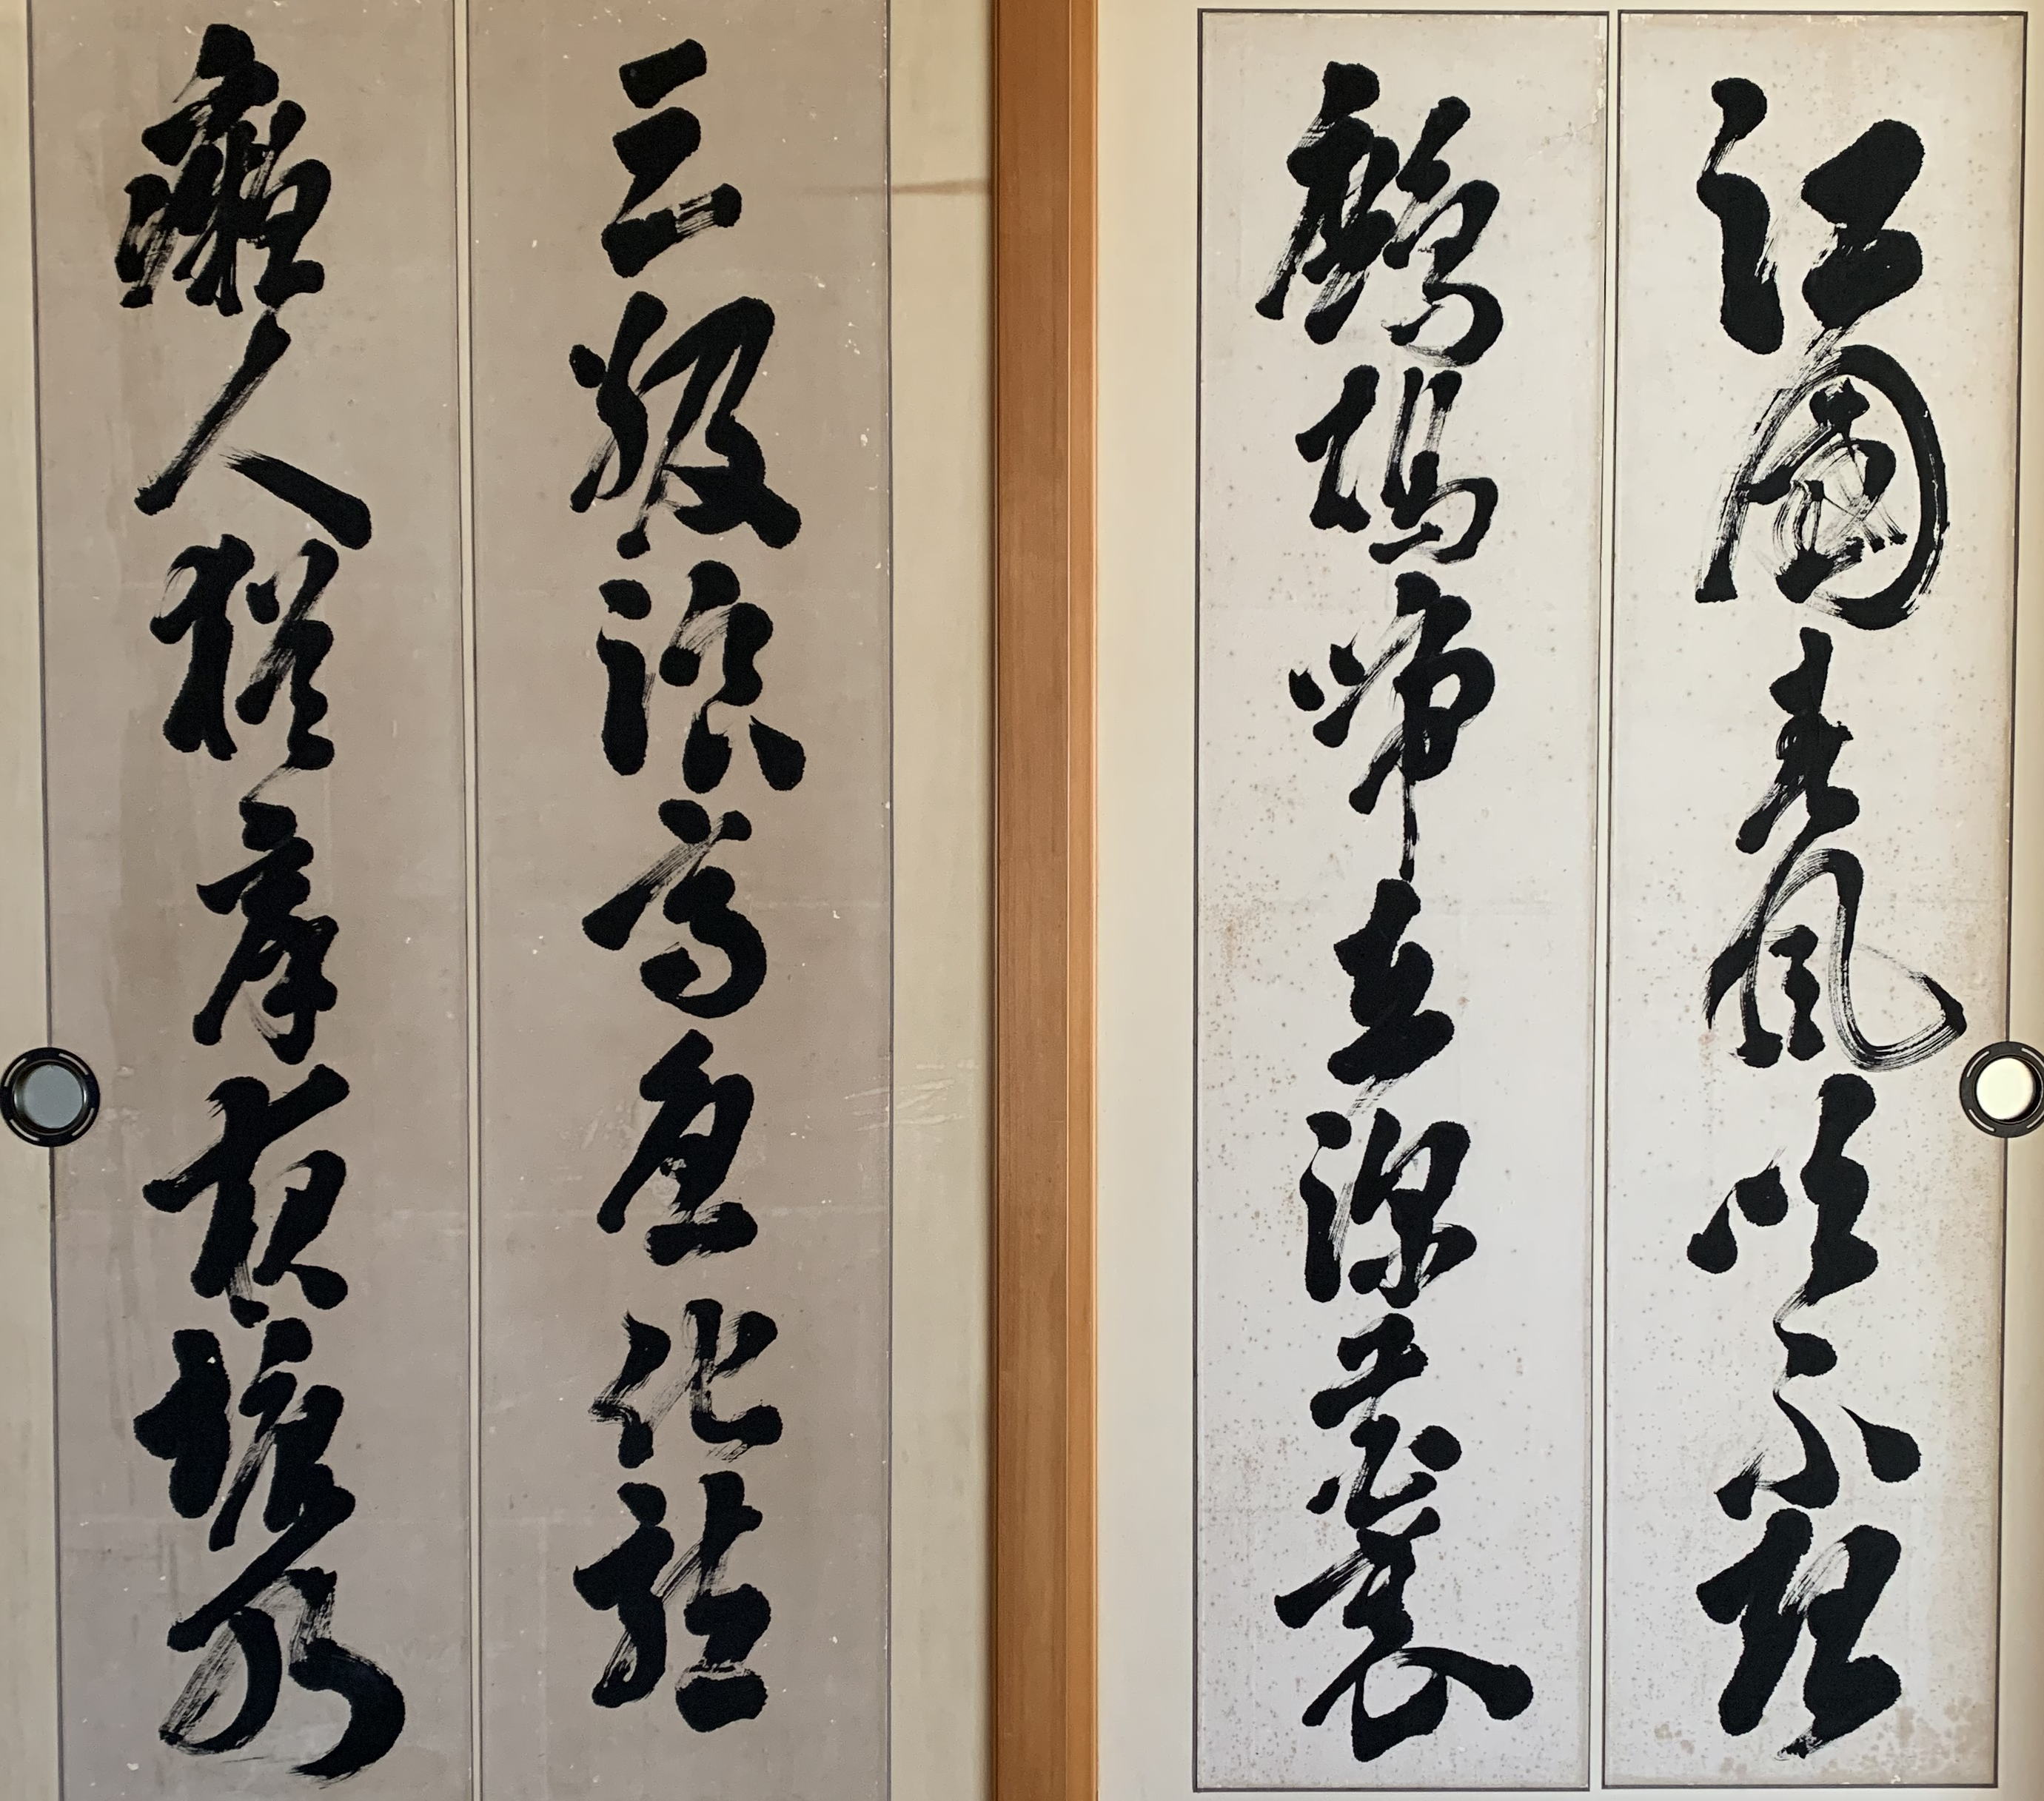 江國春風吹不起
鷓鴣啼在深花裏
三級浪高魚化龍
癡人猶戽夜塘水